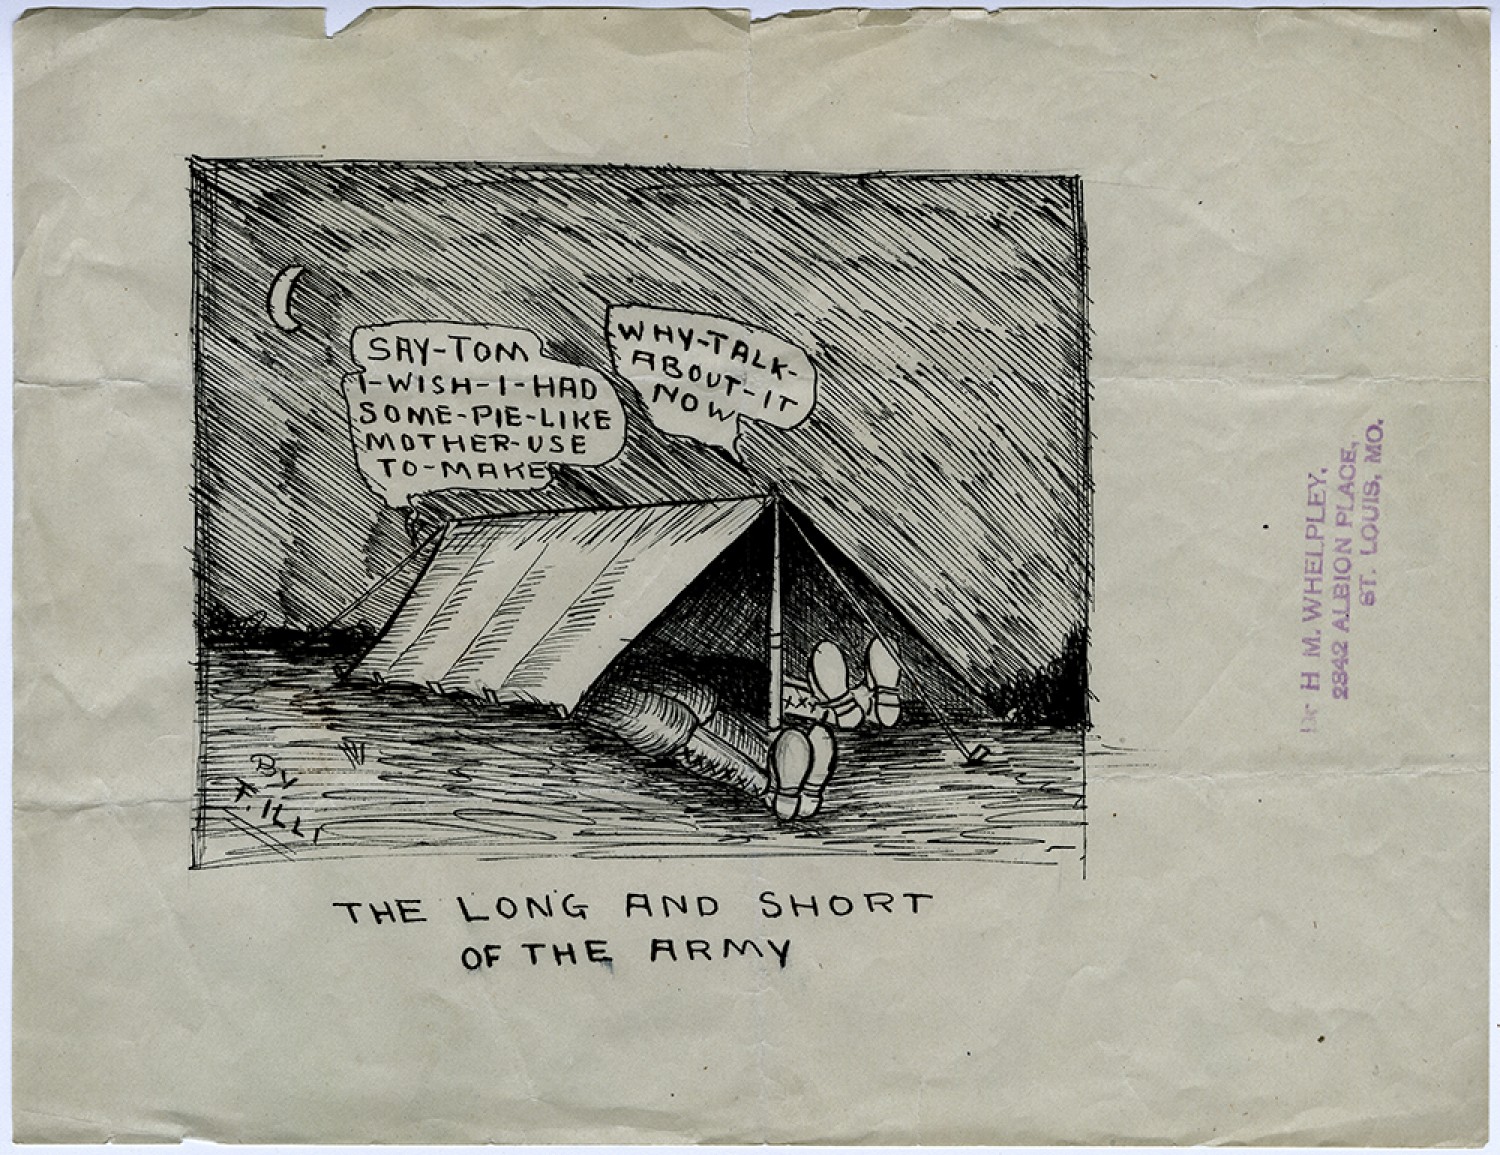 SAY-TOM
I-WISH-I-HAD
SOME-PIE-LIKE
MOTHER-USE
TO-MAKE
WHY-TALK-
ABOUT-IT
NOW
BY
T. ILLI
THE LONG AND SHORT
OF THE ARMY
Dr H M. WHELPLEY.
2842 ALBION PLACE,
ST. LOUIS, MO.